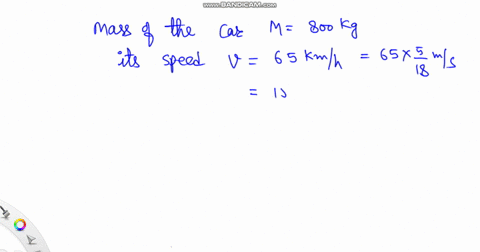 WWW.BANDICAM.COM
Mass of the car M = 800 kg
its speed V = 65 km/h = 65 × 5/18 m/s
= 1